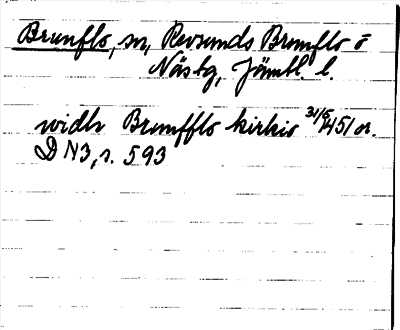 Brunflo, sn, Revsunds Brunflo o
Näs tg, Jämtl. l.
widh Brumfflo kirkio 31/5 1451 or.
DN3, s. 593